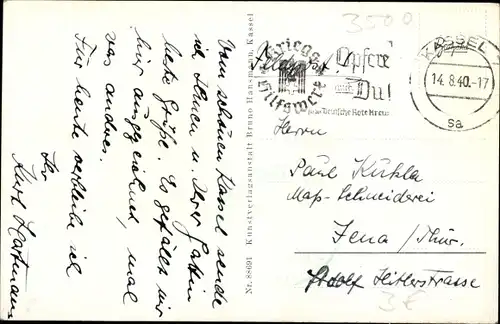 Vom schönen Kassel sende
ich Ihnen u. Ihrer Gattin
beste Grüße. Es gefällt mir
hier ausgezeichnet, mal
was anderes.
Für heute verbleibe ich
Ihr
Kurt Hartmann
Nr. 88691 Kunstverlagsanstalt Bruno Hansmann, Kassel
3500
Feldpost!
Kriegs-
Hilfswerk
Opfere
auch
Du!
für das Deutsche Rote Kreuz
KASSEL 7
14.8.40.-17
sa
Herrn
Paul Kuhla
Maß-Schneiderei
Jena / Thür.
Adolf Hitlerstrasse
3€